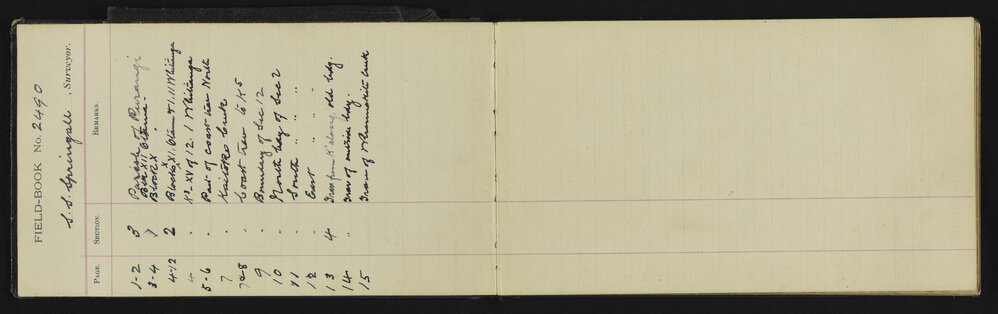 FIELD-BOOK No. 2490
S. S. Springall, Surveyor.
PAGE. SECTION. REMARKS.
1-2 3 Parish of Purangi
Blk XII Otama.
3-4 " Block X "
4-12 2 Blocks XI. Otama & 1.11 Whitianga
4 " XV of 12. 1 Whitianga
5-6 " Part of coast trav North
7 " Kaitoke Creek
7&8 " Coast trav to K5
9 " Boundary of Sec 12
10 " North bdy of Sec 2
11 " South " " "
12 " East " " "
13 4 Trav from K along old bdg.
14 " Trav of outside bdy.
15 Trav of creek